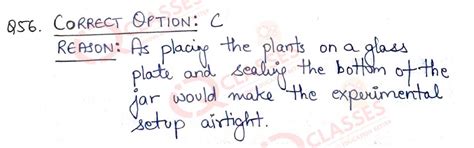 Q56. CORRECT OPTION: C
REASON: As placing the plants on a glass
plate and sealing the bottom of the
jar would make the experimental
setup airtight.
CLASSES
CLASSES